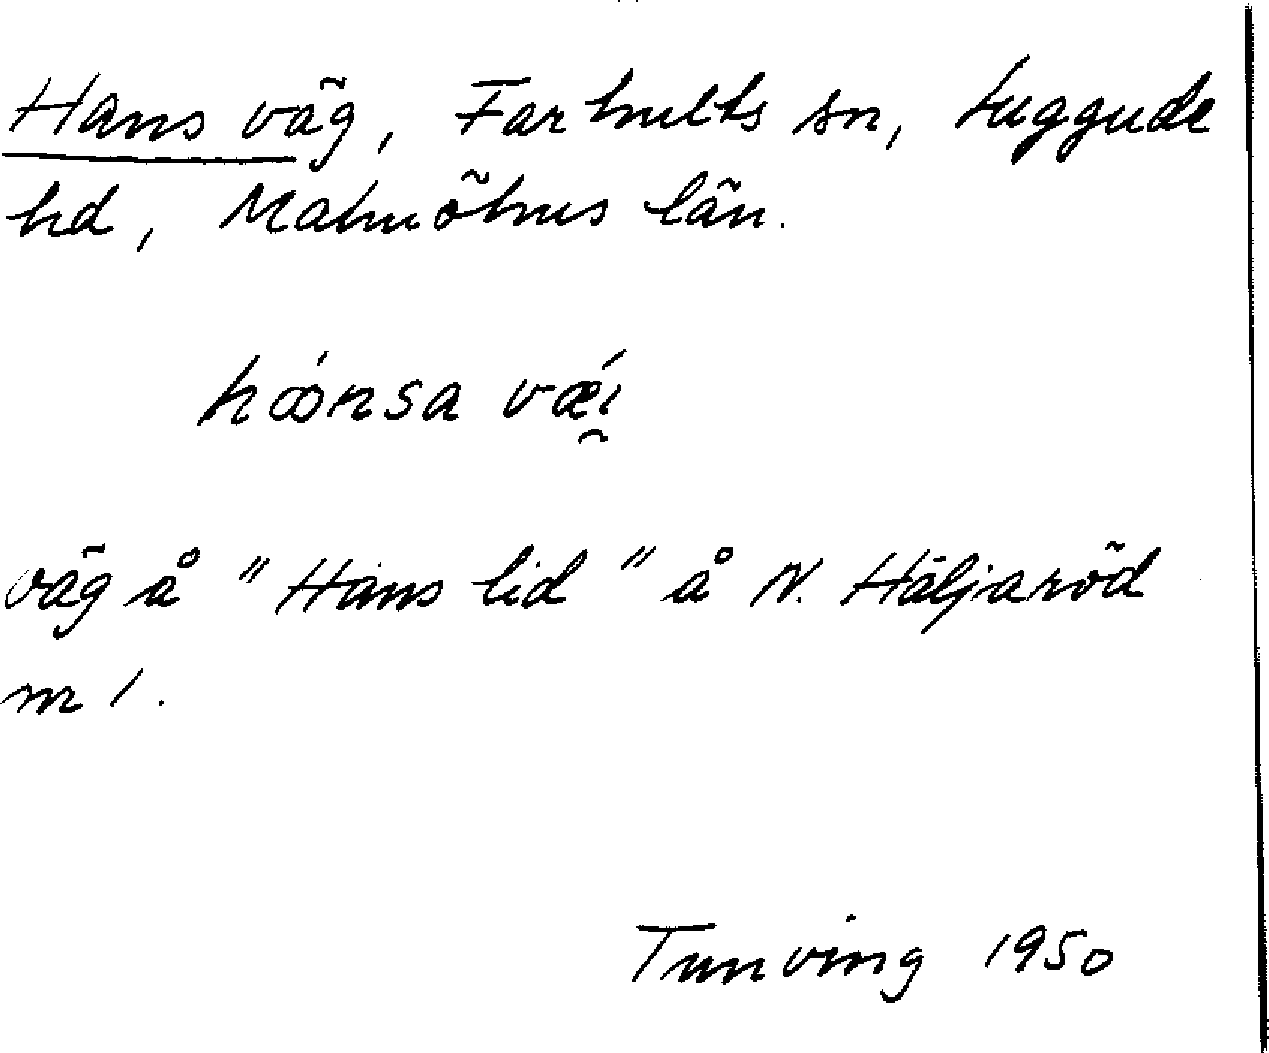 Hans väg, Farhults sn, Luggude
hd, Malmöhus län.
hɑ́nsa vǽi̯
väg å "Hans lid" å N. Häljaröd
m 1.
Tunving 1950